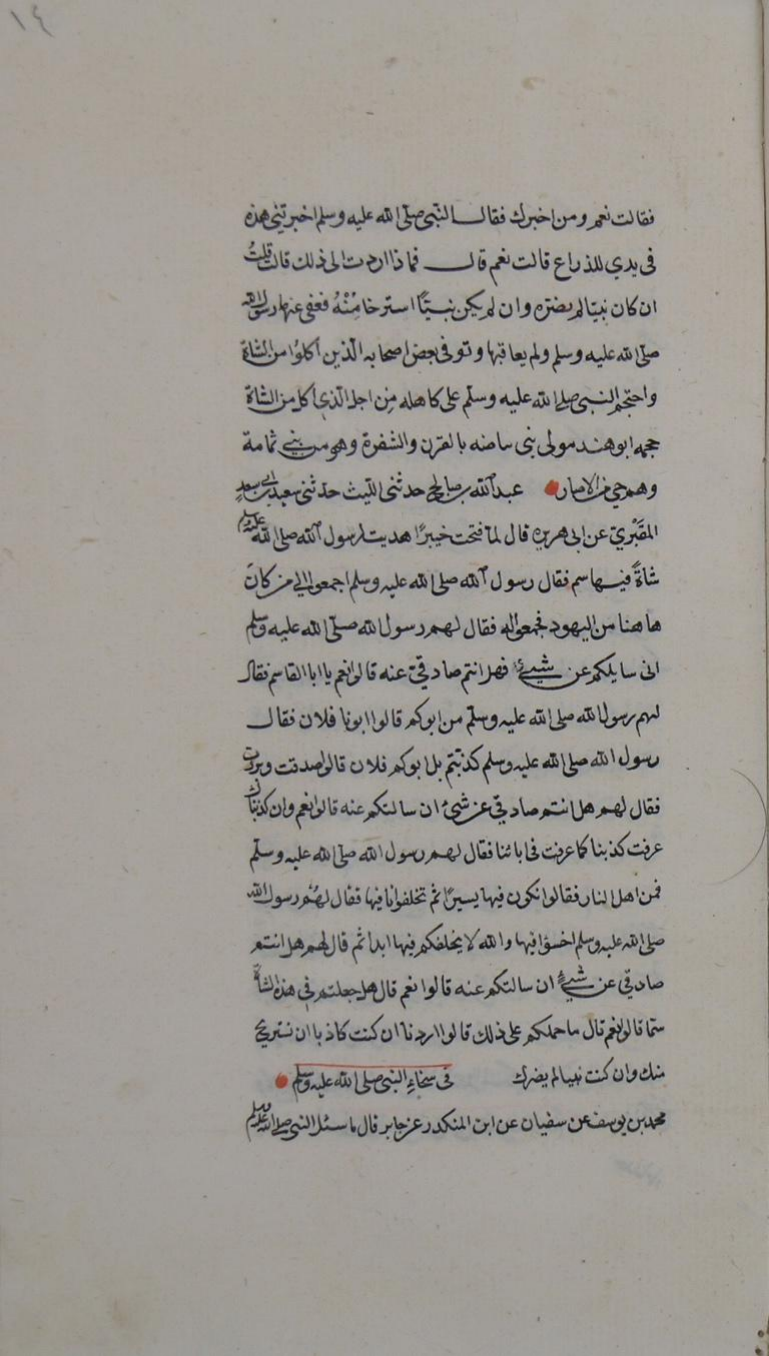 ١٤
فقالت نعم ومن اخبرك فقال النبى صلى الله عليه وسلم اخبرتنى هذه
فى يدي للذراع قالت نعم قال فماذا اردت الى ذلك قالت قلتُ
ان كان نبيا لم يضره وان لم يكن نبيًّا استرحنا مِنْهُ فعفى عنها رسول الله
صلى الله عليه وسلم ولم يعاقبها وتوفى بعض اصحابه الذين اكلوا من الشاة
واحتجم النبى صلى الله عليه وسلم على كاهله مِن اجل الذى اكل من الشاة
حجمه ابو هند مولى بنى بياضه بالقرن والشفرة وهو من بنى ثمامة
وهم حي من الانصار عبد الله بن صالح حدثنى الليث حدثنى سعيد بن ابى سعيدٍ
المقبُرىّ عن ابى هريره قال لما فتحت خيبرًا هديت لرسول الله صلى الله عليه وسلم
شاةً فيها سم فقال رسول الله صلى الله عليه وسلم اجمعوا الى من كانَ
هاهنا من اليهود فجمعوا له فقال لهم رسول الله صلى الله عليه وسلم
انى سايلكم عن شيءٍ فهل انتم صادقىّ عنه قالوا نعم يا ابا القاسم فقال
لهم رسول الله صلى الله عليه وسلم من ابوكم قالوا ابونا فلان فقال
رسول الله صلى الله عليه وسلم كذبتم بل ابوكم فلان قالوا صدقت وبررت
فقال لهم هل انتم صادقىّ عن شئ ان سالتكم عنه قالوا نعم وان كذبناك
عرفت كذبنا كما عرفت فى ابائنا فقال لهم رسول الله صلى الله عليه وسلم
فمن اهل النار فقالوا نكون فيها يسيرًا ثم تخلفوانا فيها فقال لهُم رسول الله
صلى الله عليه وسلم اخسؤا فيها والله لا نخلفكم فيها ابدا ثم قال لهم هل انتم
صادقىّ عن شيءٍ ان سالتكم عنه قالوا نعم قال هل جعلتم فى هذه الشاة
سمًا قالوا نعم قال ما حملكم على ذلك قالوا اردنا ان كنت كاذبا ان نستريح
منك وان كنت نبيا لم يضرك فى سخاء النبى صلى الله عليه وسلم
محمد بن يوسف عن سفيان عن ابن المنكدر عن جابر قال ما سئل النبى صلى الله عليه وسلم